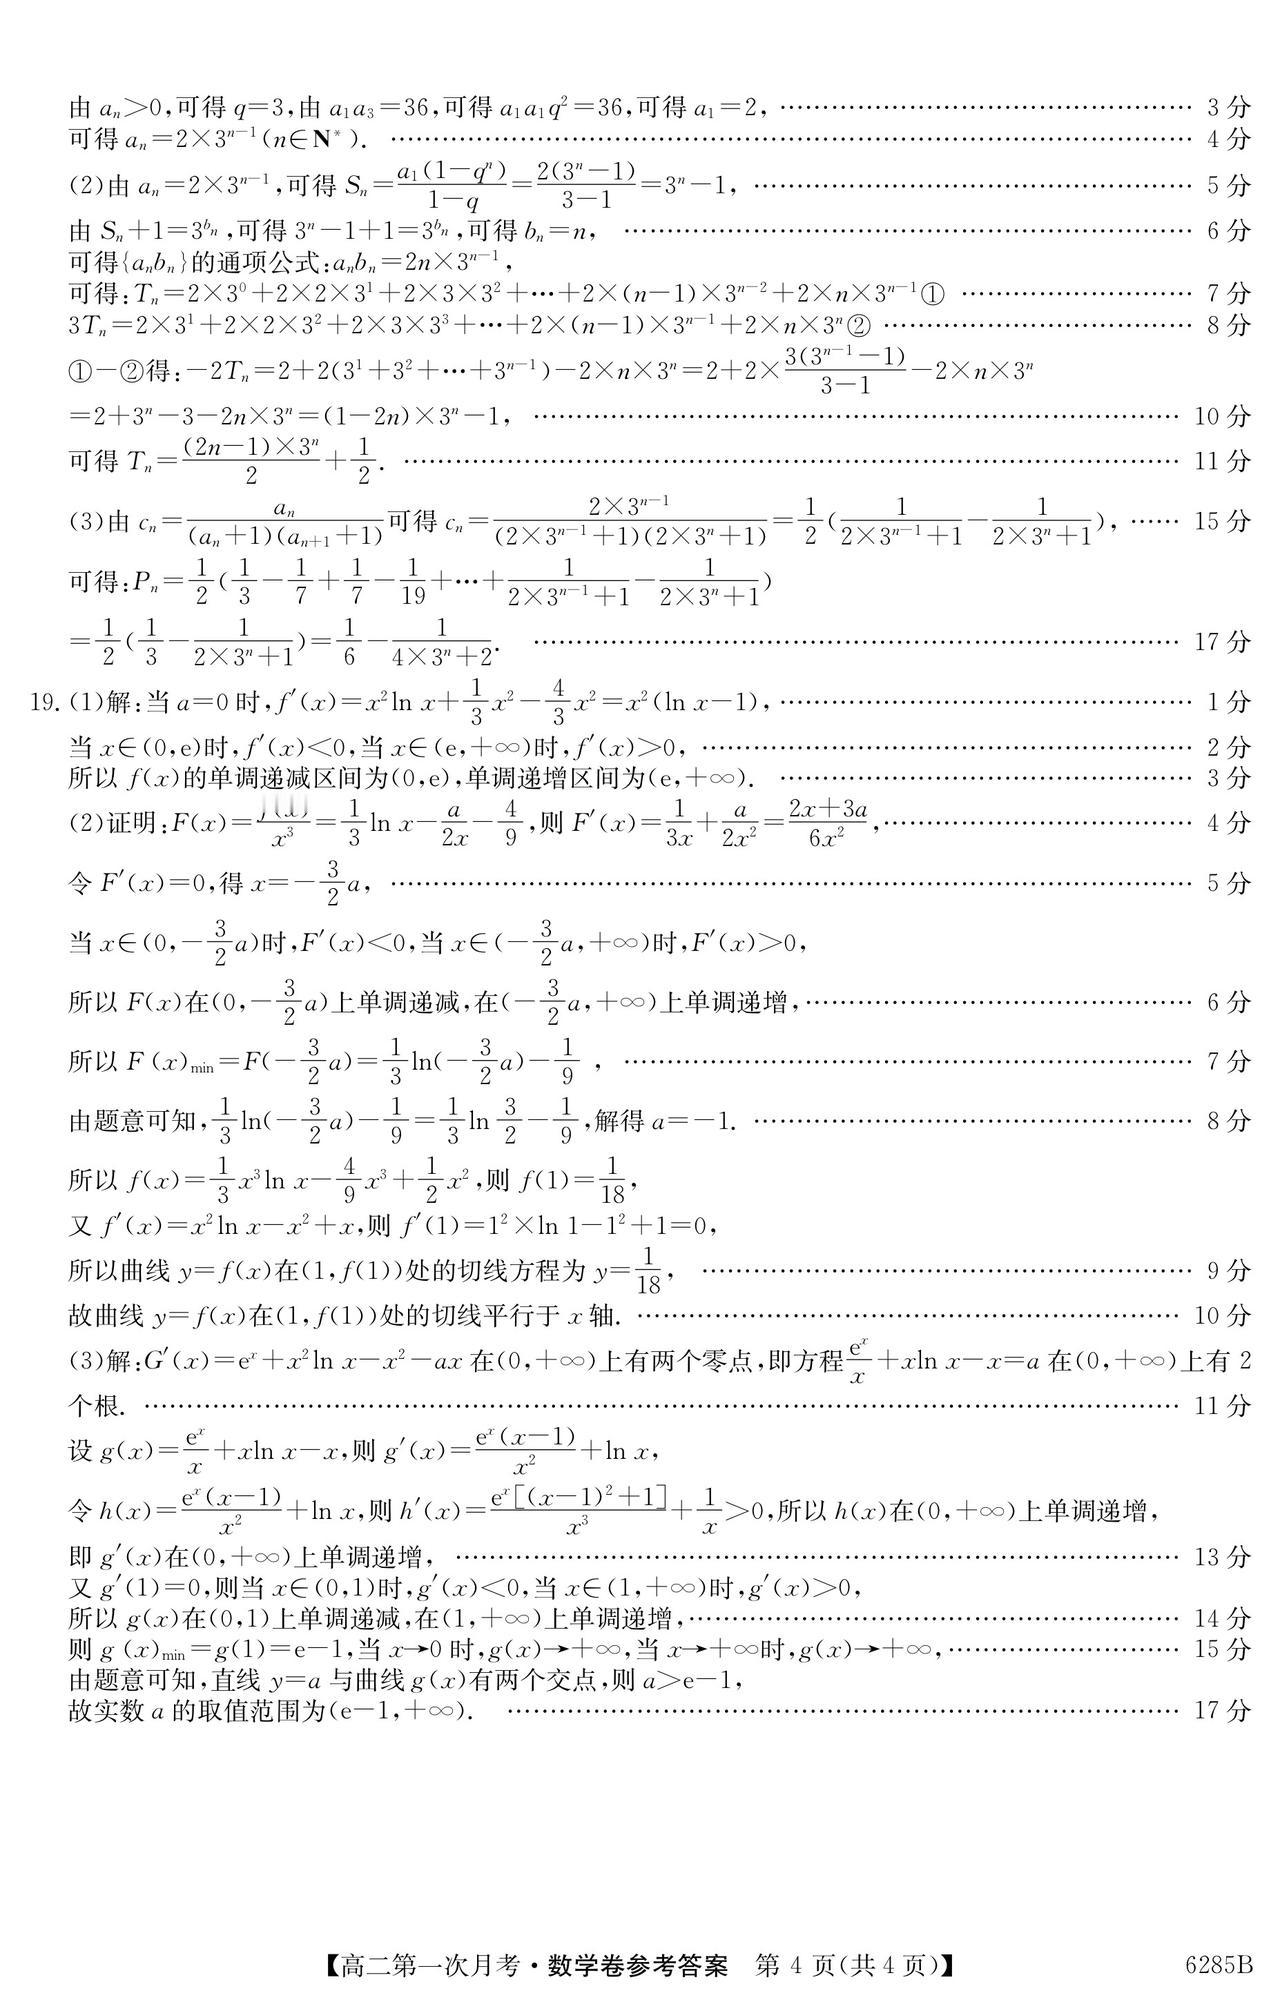 由 aₙ>0,可得 q=3,由 a₁a₃=36,可得 a₁a₁q²=36,可得 a₁=2, …… 3 分
可得 aₙ=2×3ⁿ⁻¹(n∈N*). …… 4 分
(2)由 aₙ=2×3ⁿ⁻¹,可得 Sₙ=\frac{a₁(1-qⁿ)}{1-q}=\frac{2(3ⁿ-1)}{3-1}=3ⁿ-1, …… 5 分
由 Sₙ+1=3^{bₙ},可得 3ⁿ-1+1=3^{bₙ},可得 bₙ=n, …… 6 分
可得{aₙbₙ}的通项公式:aₙbₙ=2n×3ⁿ⁻¹,
可得:Tₙ=2×3⁰+2×2×3¹+2×3×3²+…+2×(n-1)×3ⁿ⁻²+2×n×3ⁿ⁻¹① …… 7 分
3Tₙ=2×3¹+2×2×3²+2×3×3³+…+2×(n-1)×3ⁿ⁻¹+2×n×3ⁿ② …… 8 分
①-②得:-2Tₙ=2+2(3¹+3²+…+3ⁿ⁻¹)-2×n×3ⁿ=2+2×\frac{3(3ⁿ⁻¹-1)}{3-1}-2×n×3ⁿ
=2+3ⁿ-3-2n×3ⁿ=(1-2n)×3ⁿ-1, …… 10 分
可得 Tₙ=\frac{(2n-1)×3ⁿ}{2}+\frac{1}{2}. …… 11 分
(3)由 cₙ=\frac{aₙ}{(aₙ+1)(aₙ₊₁+1)}可得 cₙ=\frac{2×3ⁿ⁻¹}{(2×3ⁿ⁻¹+1)(2×3ⁿ+1)}=\frac{1}{2}(\frac{1}{2×3ⁿ⁻¹+1}-\frac{1}{2×3ⁿ+1}), …… 15 分
可得:Pₙ=\frac{1}{2}(\frac{1}{3}-\frac{1}{7}+\frac{1}{7}-\frac{1}{19}+…+\frac{1}{2×3ⁿ⁻¹+1}-\frac{1}{2×3ⁿ+1})
=\frac{1}{2}(\frac{1}{3}-\frac{1}{2×3ⁿ+1})=\frac{1}{6}-\frac{1}{4×3ⁿ+2}. …… 17 分
19. (1)解:当 a=0 时,f′(x)=x²ln x+\frac{1}{3}x²-\frac{4}{3}x²=x²(ln x-1), …… 1 分
当 x∈(0,e)时,f′(x)<0,当 x∈(e,+∞)时,f′(x)>0, …… 2 分
所以 f(x)的单调递减区间为(0,e),单调递增区间为(e,+∞). …… 3 分
(2)证明:F(x)=\frac{f(x)}{x³}=\frac{1}{3}ln x-\frac{a}{2x}-\frac{4}{9},则 F′(x)=\frac{1}{3x}+\frac{a}{2x²}=\frac{2x+3a}{6x²}, …… 4 分
令 F′(x)=0,得 x=-\frac{3}{2}a, …… 5 分
当 x∈(0,-\frac{3}{2}a)时,F′(x)<0,当 x∈(-\frac{3}{2}a,+∞)时,F′(x)>0,
所以 F(x)在(0,-\frac{3}{2}a)上单调递减,在(-\frac{3}{2}a,+∞)上单调递增, …… 6 分
所以 F (x)_{min}=F(-\frac{3}{2}a)=\frac{1}{3}ln(-\frac{3}{2}a)-\frac{1}{9} , …… 7 分
由题意可知,\frac{1}{3}ln(-\frac{3}{2}a)-\frac{1}{9}=\frac{1}{3}ln \frac{3}{2}-\frac{1}{9},解得 a=-1. …… 8 分
所以 f(x)=\frac{1}{3}x³ln x-\frac{4}{9}x³+\frac{1}{2}x²,则 f(1)=\frac{1}{18},
又 f′(x)=x²ln x-x²+x,则 f′(1)=1²×ln 1-1²+1=0,
所以曲线 y=f(x)在(1,f(1))处的切线方程为 y=\frac{1}{18}, …… 9 分
故曲线 y=f(x)在(1,f(1))处的切线平行于 x 轴. …… 10 分
(3)解:G′(x)=eˣ+x²ln x-x²-ax 在(0,+∞)上有两个零点,即方程\frac{eˣ}{x}+xln x-x=a 在(0,+∞)上有 2
个根. …… 11 分
设 g(x)=\frac{eˣ}{x}+xln x-x,则 g′(x)=\frac{eˣ(x-1)}{x²}+ln x,
令 h(x)=\frac{eˣ(x-1)}{x²}+ln x,则 h′(x)=\frac{eˣ[(x-1)²+1]}{x³}+\frac{1}{x}>0,所以 h(x)在(0,+∞)上单调递增,
即 g′(x)在(0,+∞)上单调递增, …… 13 分
又 g′(1)=0,则当 x∈(0,1)时,g′(x)<0,当 x∈(1,+∞)时,g′(x)>0,
所以 g(x)在(0,1)上单调递减,在(1,+∞)上单调递增, …… 14 分
则 g (x)_{min}=g(1)=e-1,当 x→0 时,g(x)→+∞,当 x→+∞时,g(x)→+∞, …… 15 分
由题意可知,直线 y=a 与曲线 g(x)有两个交点,则 a>e-1,
故实数 a 的取值范围为(e-1,+∞). …… 17 分
【高二第一次月考·数学卷参考答案 第 4 页(共 4 页)】 6285B